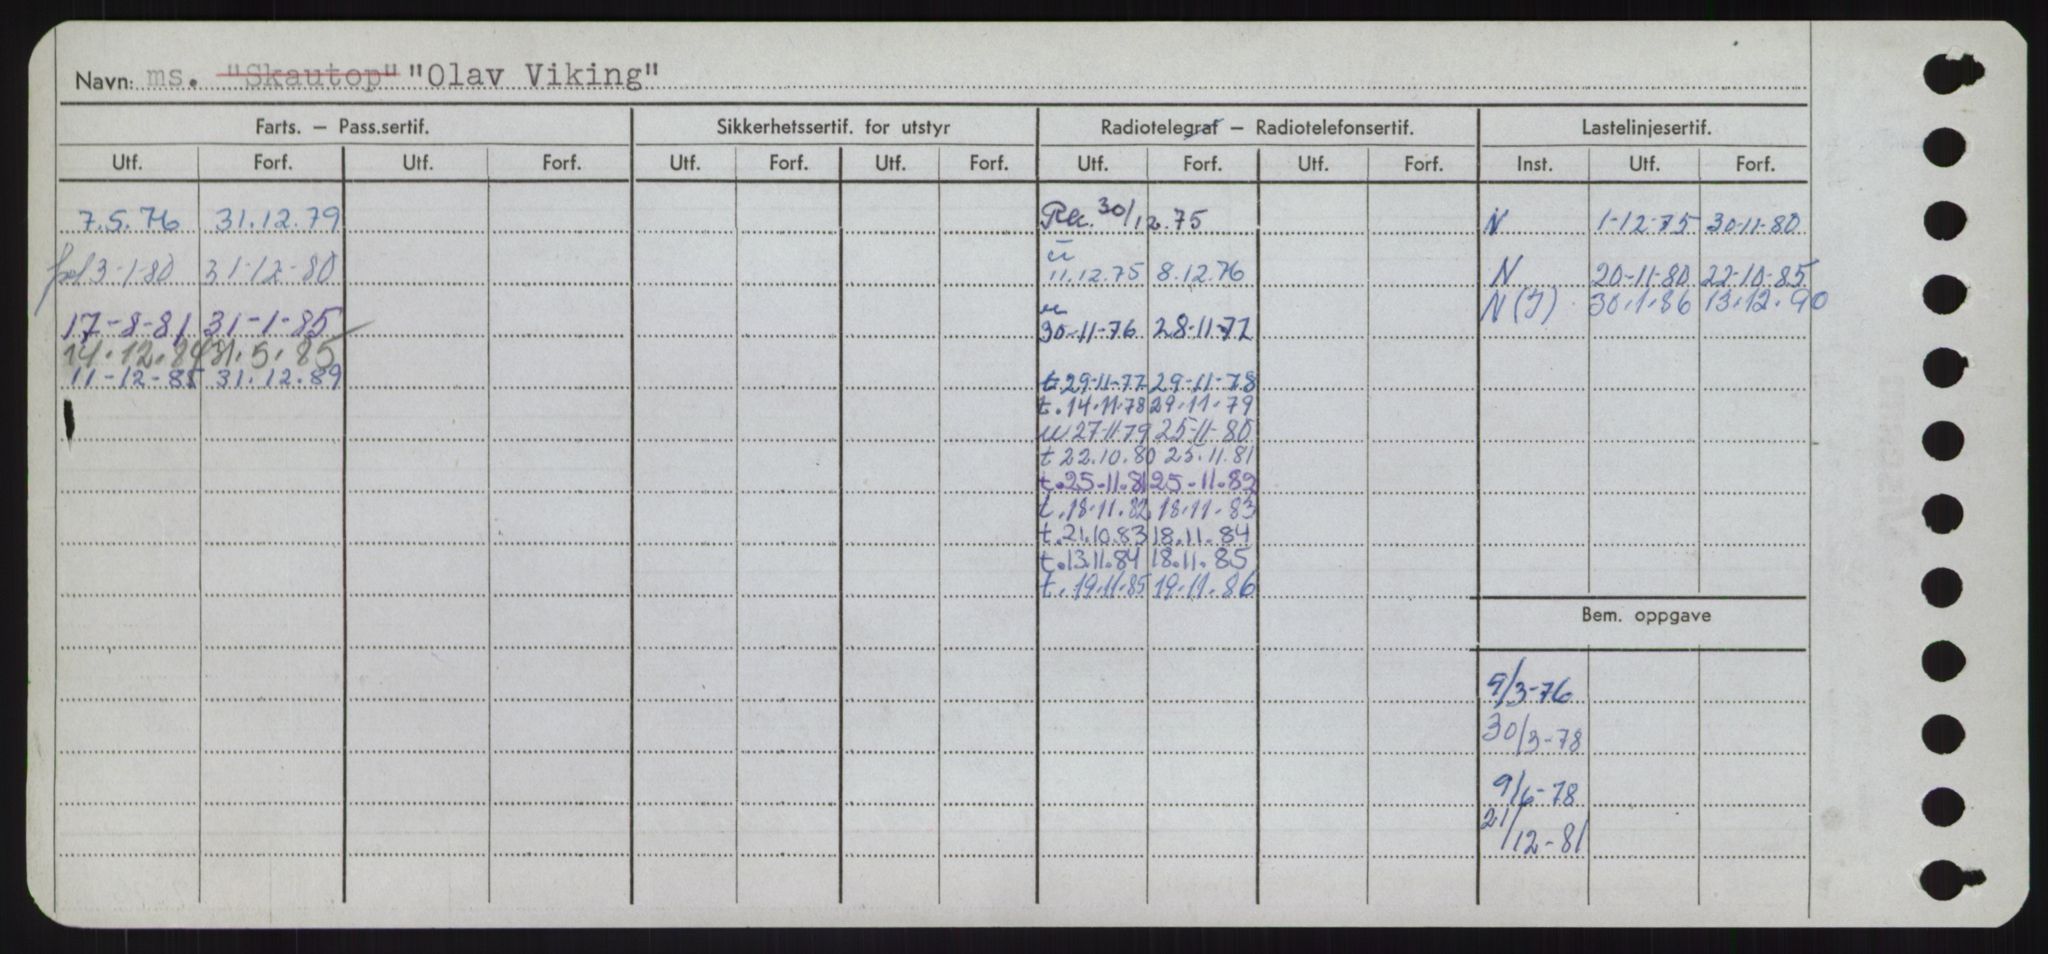 Navn: ms. "Skautop" "Olav Viking"
Farts. — Pass.sertif. Sikkerhetssertif. for utstyr Radiotelegraf — Radiotelefonsertif. Lastelinjesertif.
Utf. Forf. Utf. Forf. Utf. Forf. Utf. Forf. Utf. Forf. Utf. Forf. Inst. Utf. Forf.
7.5.76 31.12.79 30/12.75 N 1-12-75 30-11-80
3-1-80 31-12-80 11.12.75 8.12.76 N 20-11-80 22-10-85
N (I) 30.1.86 13.12.90
17-8-81 31-1-85 30-11-76 28-11-77
14.12.84 31.5.85
11-12-85 31.12.89 t 29-11-77 29-11-78
t. 14.11.78 29.11.79
u 27-11-79 25-11-80
t 22.10.80 25.11.81
t. 25.11.81 25.11.82
t. 18.11.82 18.11.83
t. 21.10.83 18.11.84
t. 13.11.84 18.11.85
t. 19.11.85 19.11.86
Bem. oppgave
9/3-76
30/3-78
9/6-78
21/12-81